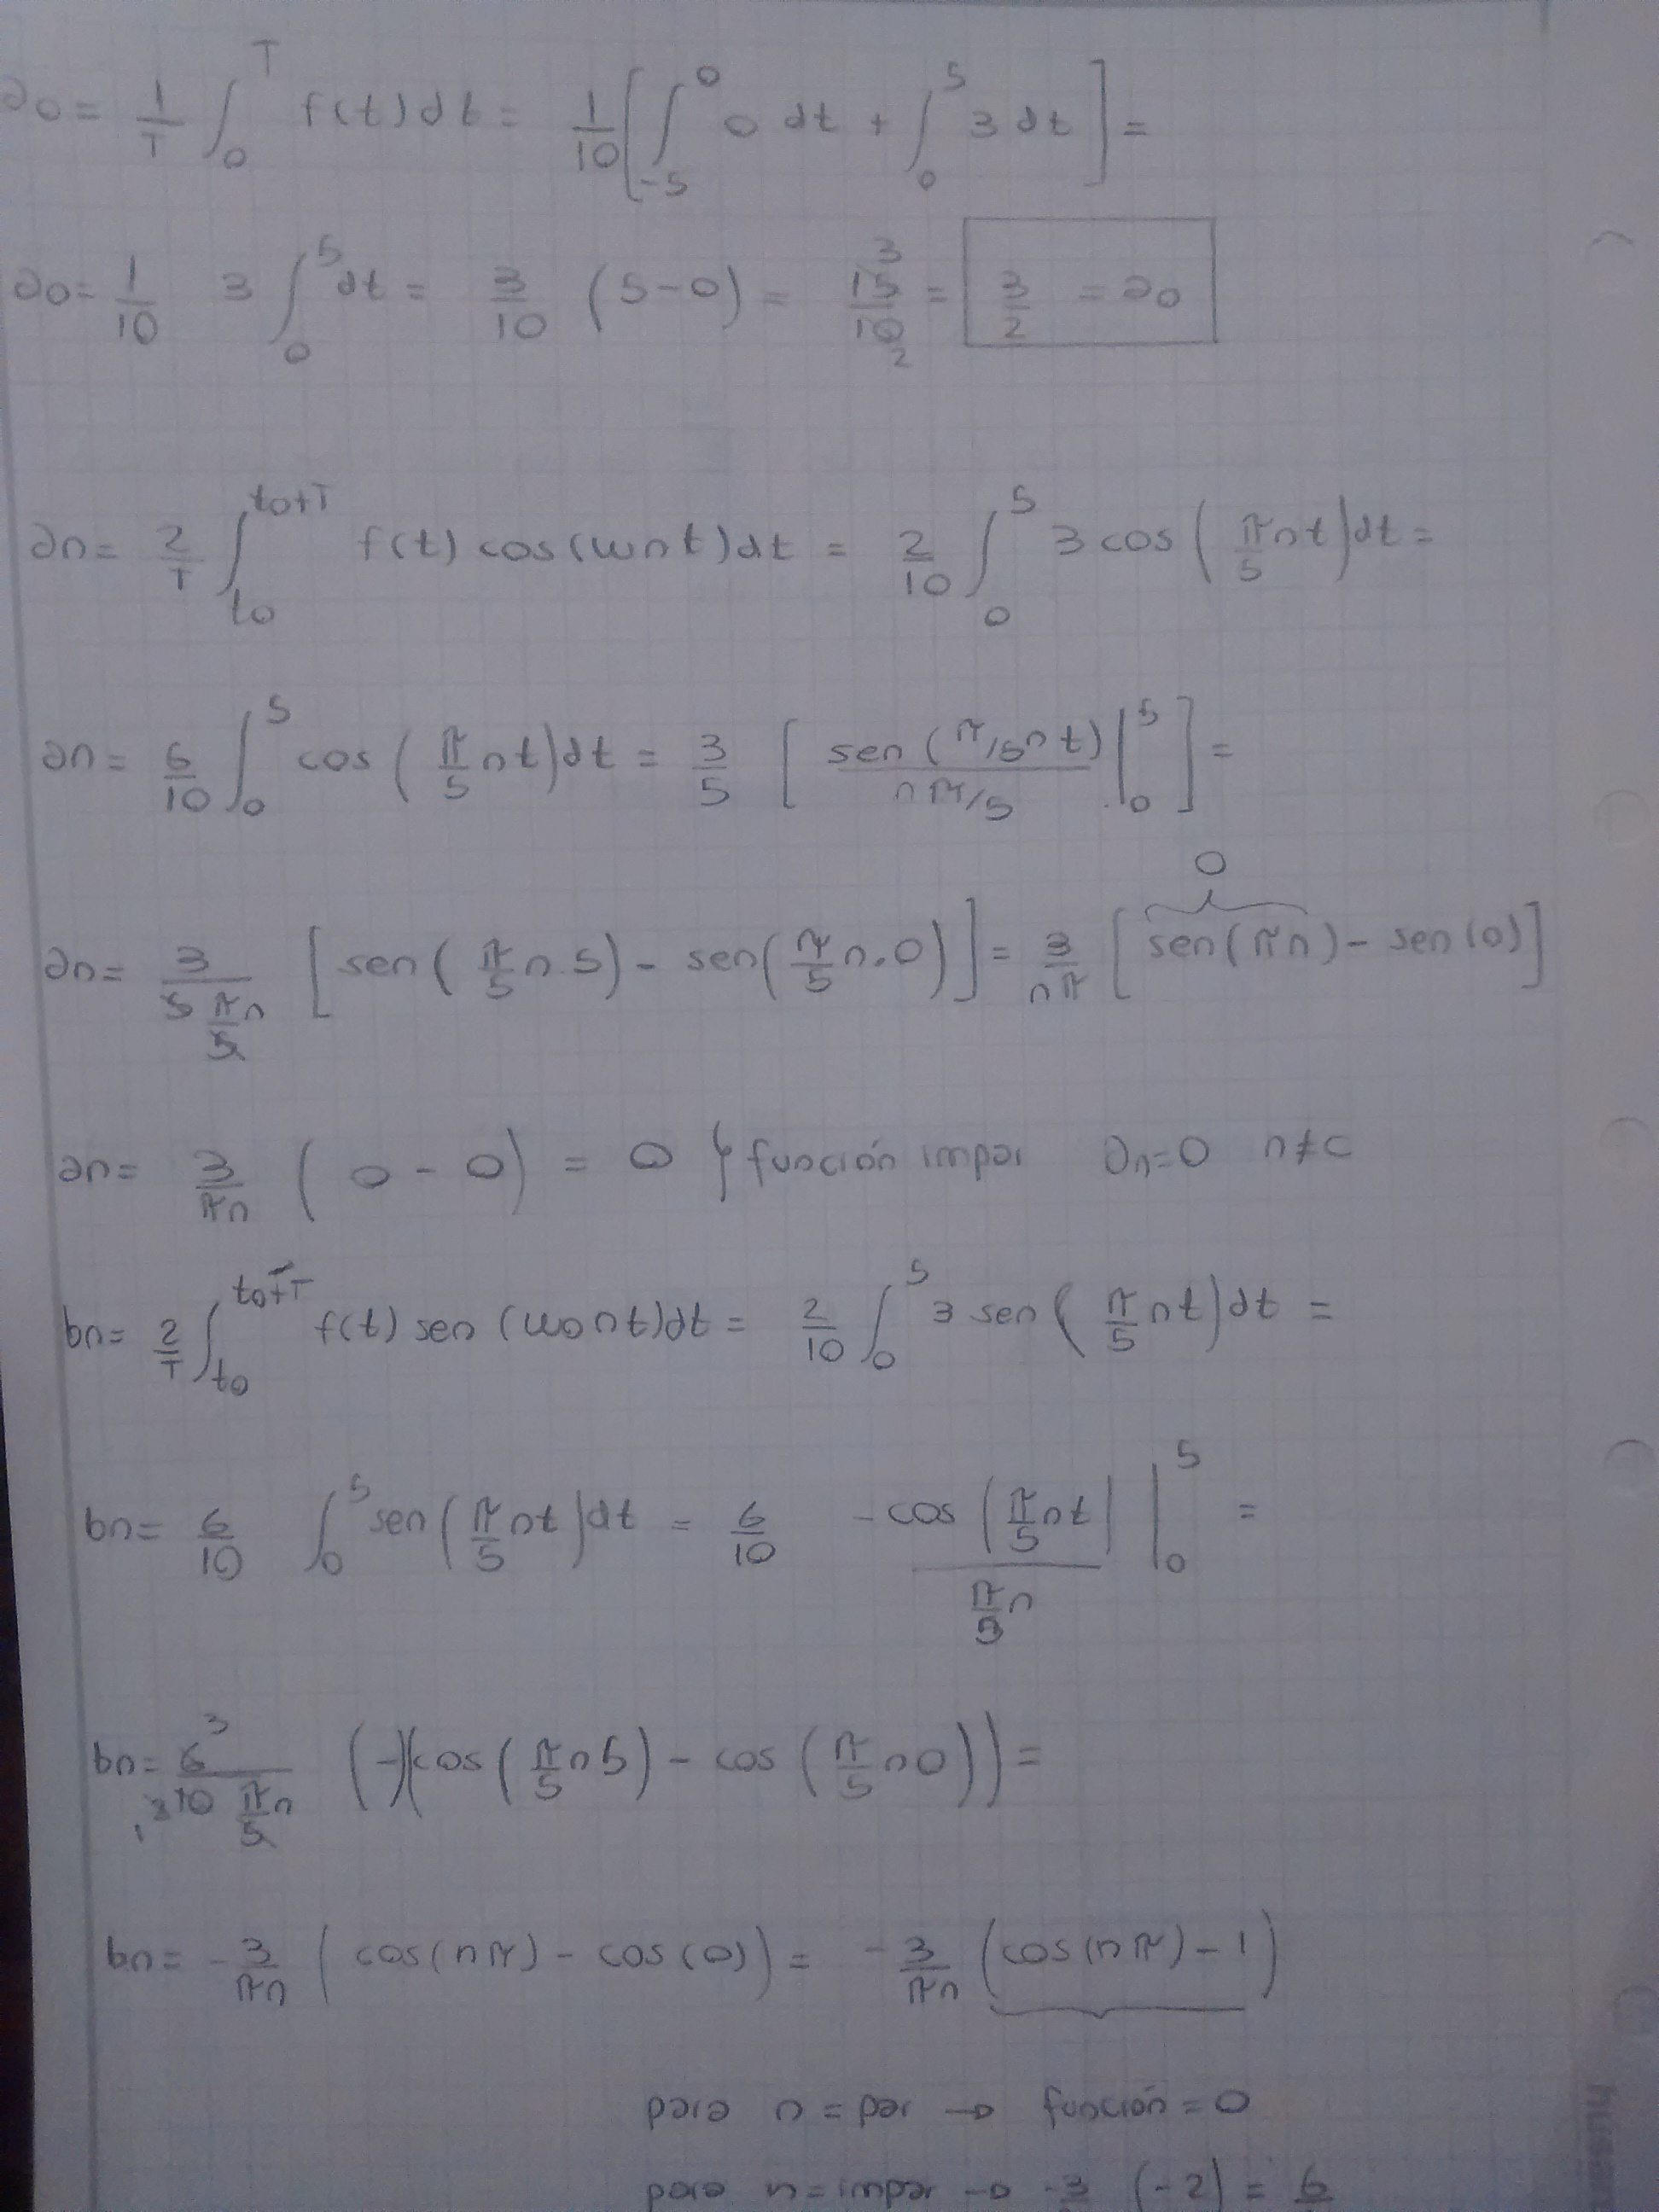 a0 = 1/T ∫_0^T f(t)dt = 1/10 [ ∫_-5^0 0 dt + ∫_0^5 3 dt ] =
a0 = 1/10 3 ∫_0^5 dt = 3/10 (5-0) = 15/10 3 2 = 3/2 = a0
an = 2/T ∫_t0^t0+T f(t) cos(wnt)dt = 2/10 ∫_0^5 3 cos(π/5 nt)dt =
an = 6/10 ∫_0^5 cos(π/5 nt)dt = 3/5 [ sen(π/5 nt) / nπ/5 |_0^5 ] =
0
an = 3/(5 π/5 n) [ sen(π/5 n 5) - sen(π/5 n.0) ] = 3/nπ [ sen(πn) - sen(0) ]
an = 3/πn ( 0 - 0 ) = 0 } función impar an=0 n≠c
bn = 2/T ∫_t0^t0+T f(t) sen(w0nt)dt = 2/10 ∫_0^5 3 sen(π/5 nt)dt =
bn = 6/10 ∫_0^5 sen(π/5 nt)dt = 6/10 -cos(π/5 nt) / π/5 n |_0^5 =
bn = 6 3/(10 π/5 n) (-)(cos(π/5 n5) - cos(π/5 n0)) =
bn = -3/πn ( cos(nπ) - cos(0) ) = -3/πn (cos(nπ) - 1)
para n = par → función = 0
para n = impar → -3 (-2) = 6